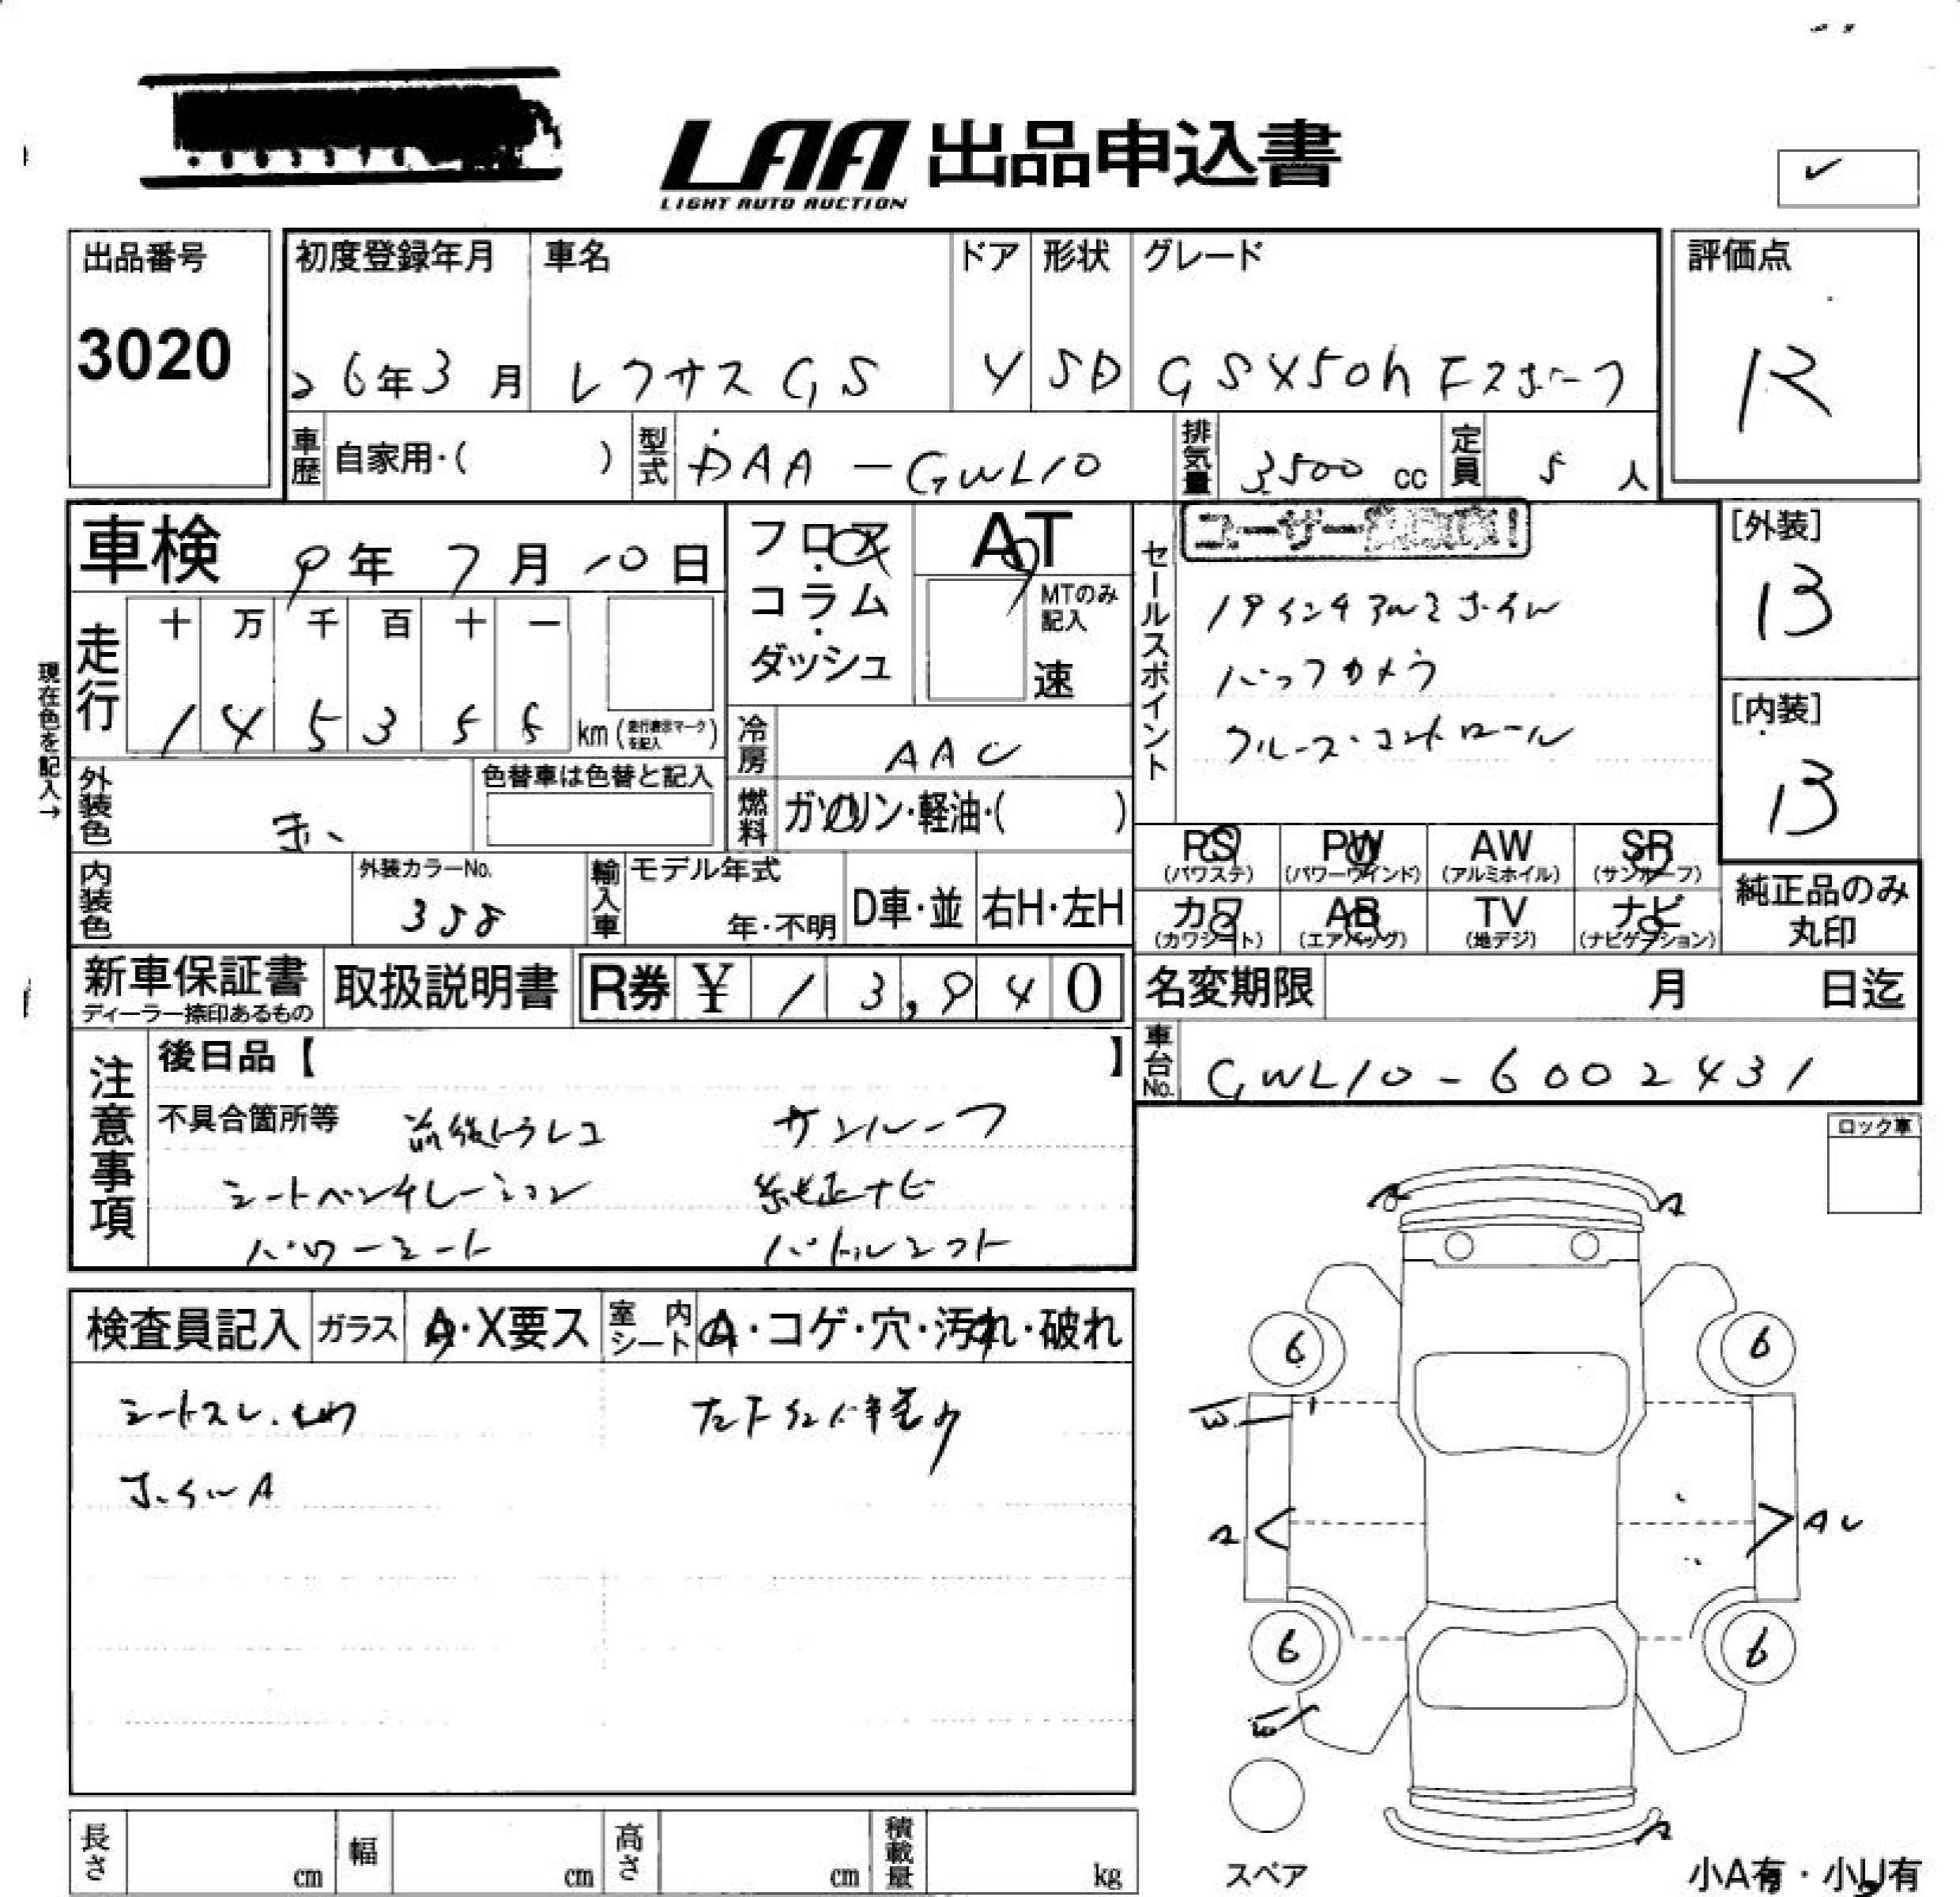 LAA 出品申込書
LIGHT AUTO AUCTION
出品番号
3020
初度登録年月
26年3月
車名
レクサス GS
ドア
4
形状
SD
グレード
GS450h Fスポーツ
評価点
R
車歴 自家用・( )
型式 DAA-GWL10
排気量 3500 cc
定員 5 人
車検 9年7月10日
フロア・コラム・ダッシュ
AT
MTのみ記入
速
セールスポイント
19インチアルミホイル
バックカメラ
クルーズ・コントロール
[外装]
B
[内装]
B
現在色を記入→
走行
十 万 千 百 十 一
1 4 5 3 5
km (走行表示マークを記入)
冷房 AAC
燃料 ガソリン・軽油・( )
外装色
色替車は色替と記入
内装色
外装カラーNo.
358
輸入車
モデル年式
年・不明
D車・並
右H・左H
PS (パワステ)
PW (パワーウインド)
AW (アルミホイル)
SR (サンルーフ)
カワ (カワシート)
AB (エアバッグ)
TV (地デジ)
ナビ (ナビゲーション)
純正品のみ丸印
新車保証書
ディーラー捺印あるもの
取扱説明書
R券 ¥ 13,940
名変期限 月 日迄
車台No. GWL10-6002431
注意事項
後日品【 】
不具合箇所等 前後ドラレコ サンルーフ
シートベンチレーション 純正ナビ
パワーシート パドルシフト
ロック車
検査員記入
ガラス A・X要ス
室内シート A・コゲ・穴・汚れ・破れ
シートスレ
ホイルA
6
6
A
6
6
スペア
長さ cm
幅 cm
高さ cm
積載量 kg
小A有・小U有